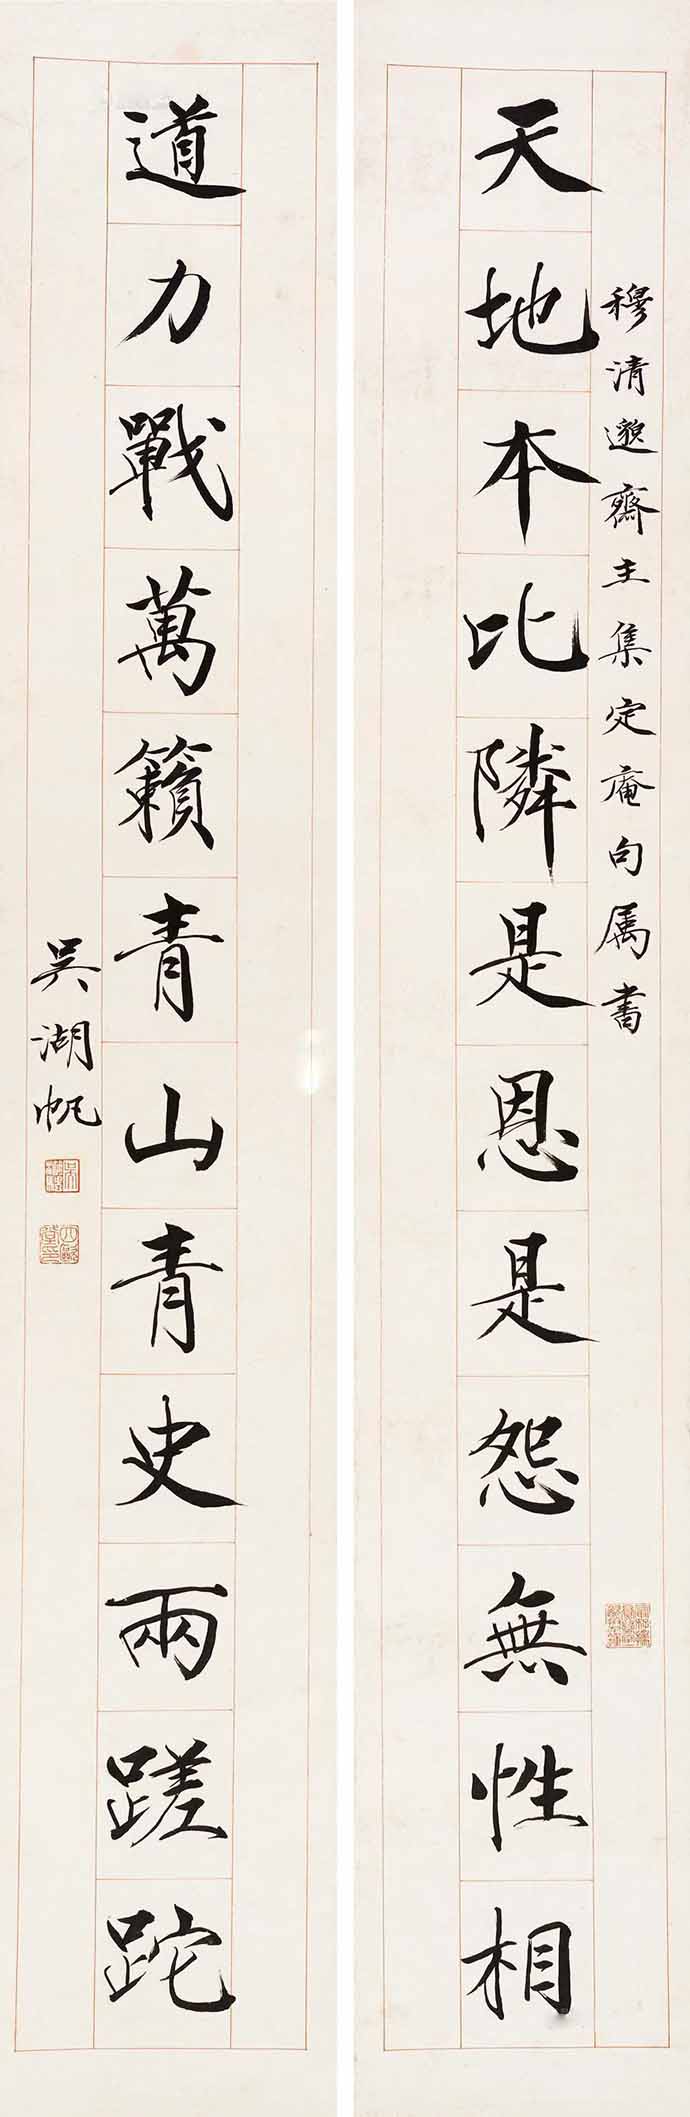 穆清邈齋主集定庵句属書
天地本比隣是恩是怨無性相
道力戰萬籟青山青史兩蹉跎
吳湖帆